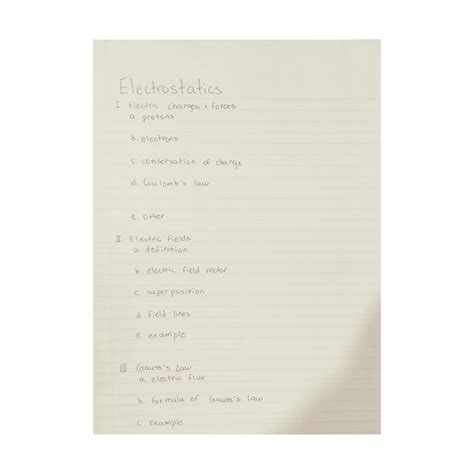 Electrostatics
I Electric charges + forces
a. protons
b. electrons
c. conservation of charge
d. Coulomb's law
e. other
II Electric fields
a. definition
b. electric field vector
c. superposition
d. field lines
e. example
III Gauss's Law
a. electric flux
b. formula of Gauss's Law
c. example